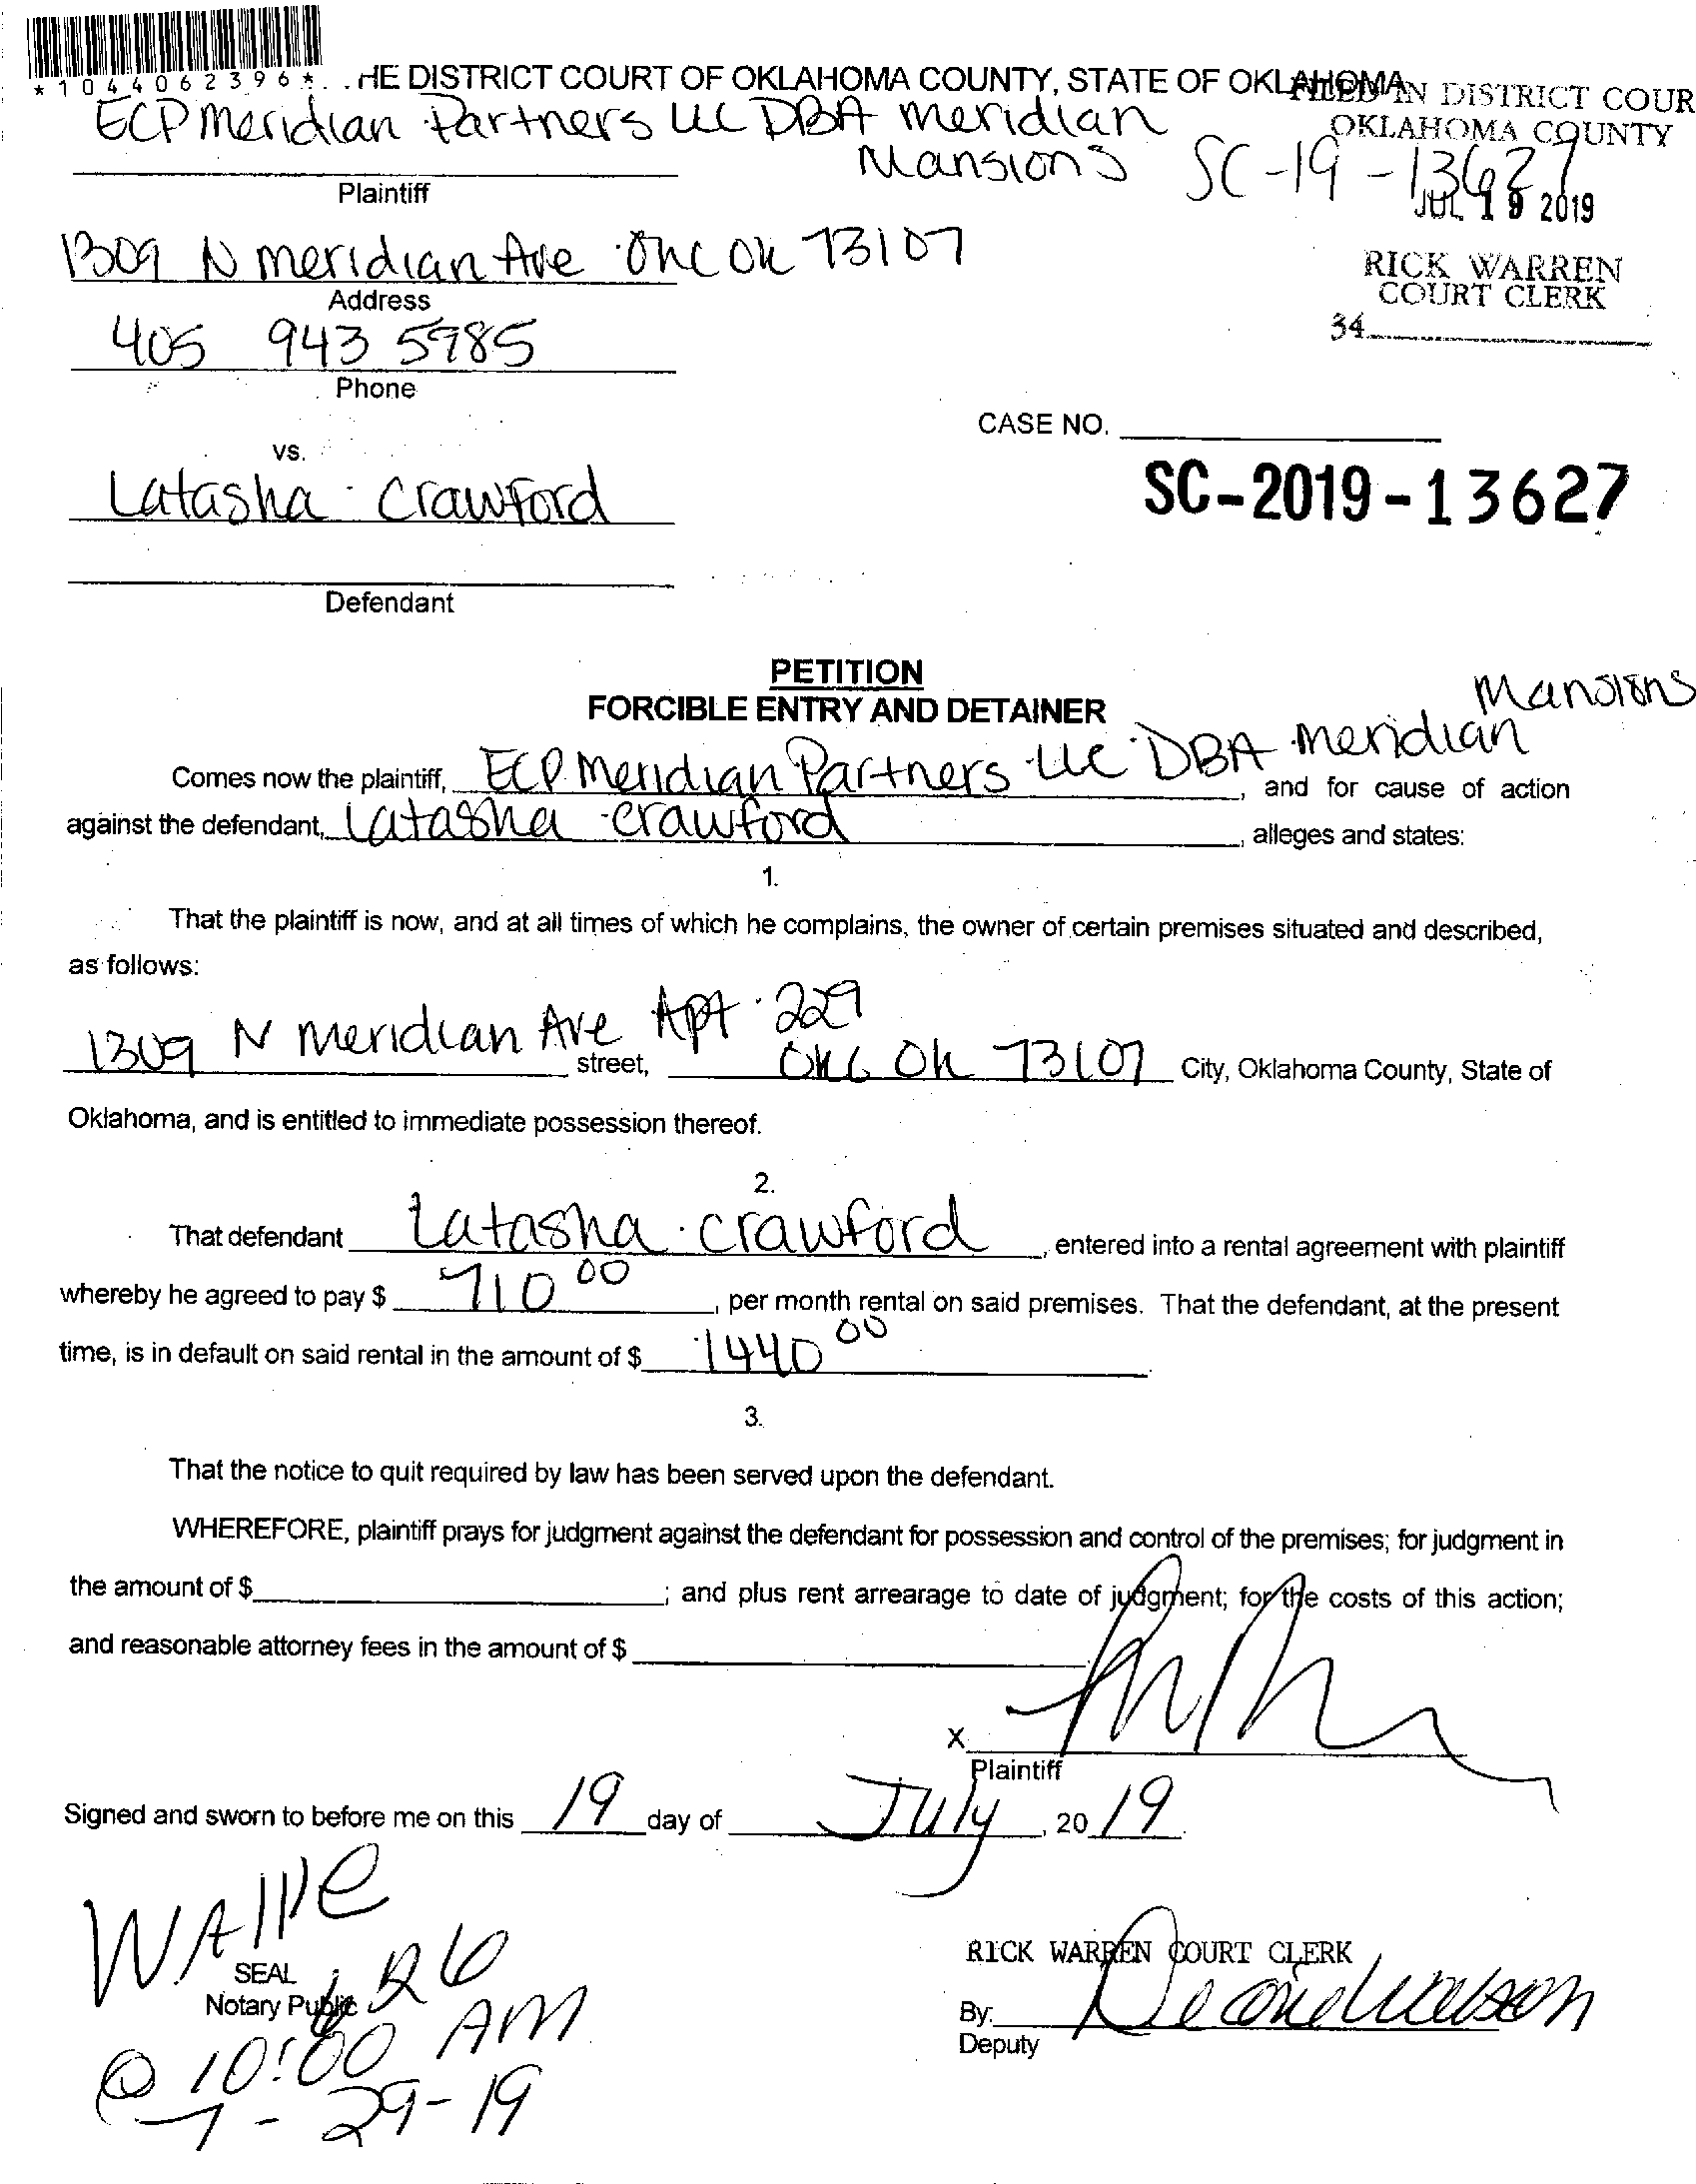 *1044062396*
HE DISTRICT COURT OF OKLAHOMA COUNTY, STATE OF OKLAHOMA
FILED IN DISTRICT COUR
OKLAHOMA COUNTY
ECP Meridian Partners LLC DBA Meridian
Mansions
SC-19-13627
JUL 19 2019
Plaintiff
1309 N Meridian Ave OKC OK 73107
RICK WARREN
COURT CLERK
Address
34
405 943 5985
Phone
CASE NO.
vs.
SC-2019-13627
Latasha Crawford
Defendant
PETITION
FORCIBLE ENTRY AND DETAINER
Mansions
Comes now the plaintiff, ECP Meridian Partners LLC DBA Meridian, and for cause of action
against the defendant, Latasha Crawford, alleges and states:
1.
That the plaintiff is now, and at all times of which he complains, the owner of certain premises situated and described,
as follows:
1309 N Meridian Ave Apt 229
street, OKC OK 73107 City, Oklahoma County, State of
Oklahoma, and is entitled to immediate possession thereof.
2.
That defendant Latasha Crawford, entered into a rental agreement with plaintiff
whereby he agreed to pay $ 710 00, per month rental on said premises. That the defendant, at the present
time, is in default on said rental in the amount of $ 1440 00.
3.
That the notice to quit required by law has been served upon the defendant.
WHEREFORE, plaintiff prays for judgment against the defendant for possession and control of the premises; for judgment in
the amount of $ ; and plus rent arrearage to date of judgment; for the costs of this action;
and reasonable attorney fees in the amount of $
X
Plaintiff
Signed and sworn to before me on this 19 day of July, 20 19.
SEAL
RICK WARREN COURT CLERK
Notary Public
By:
Deputy
@ 10:00 AM
7-29-19